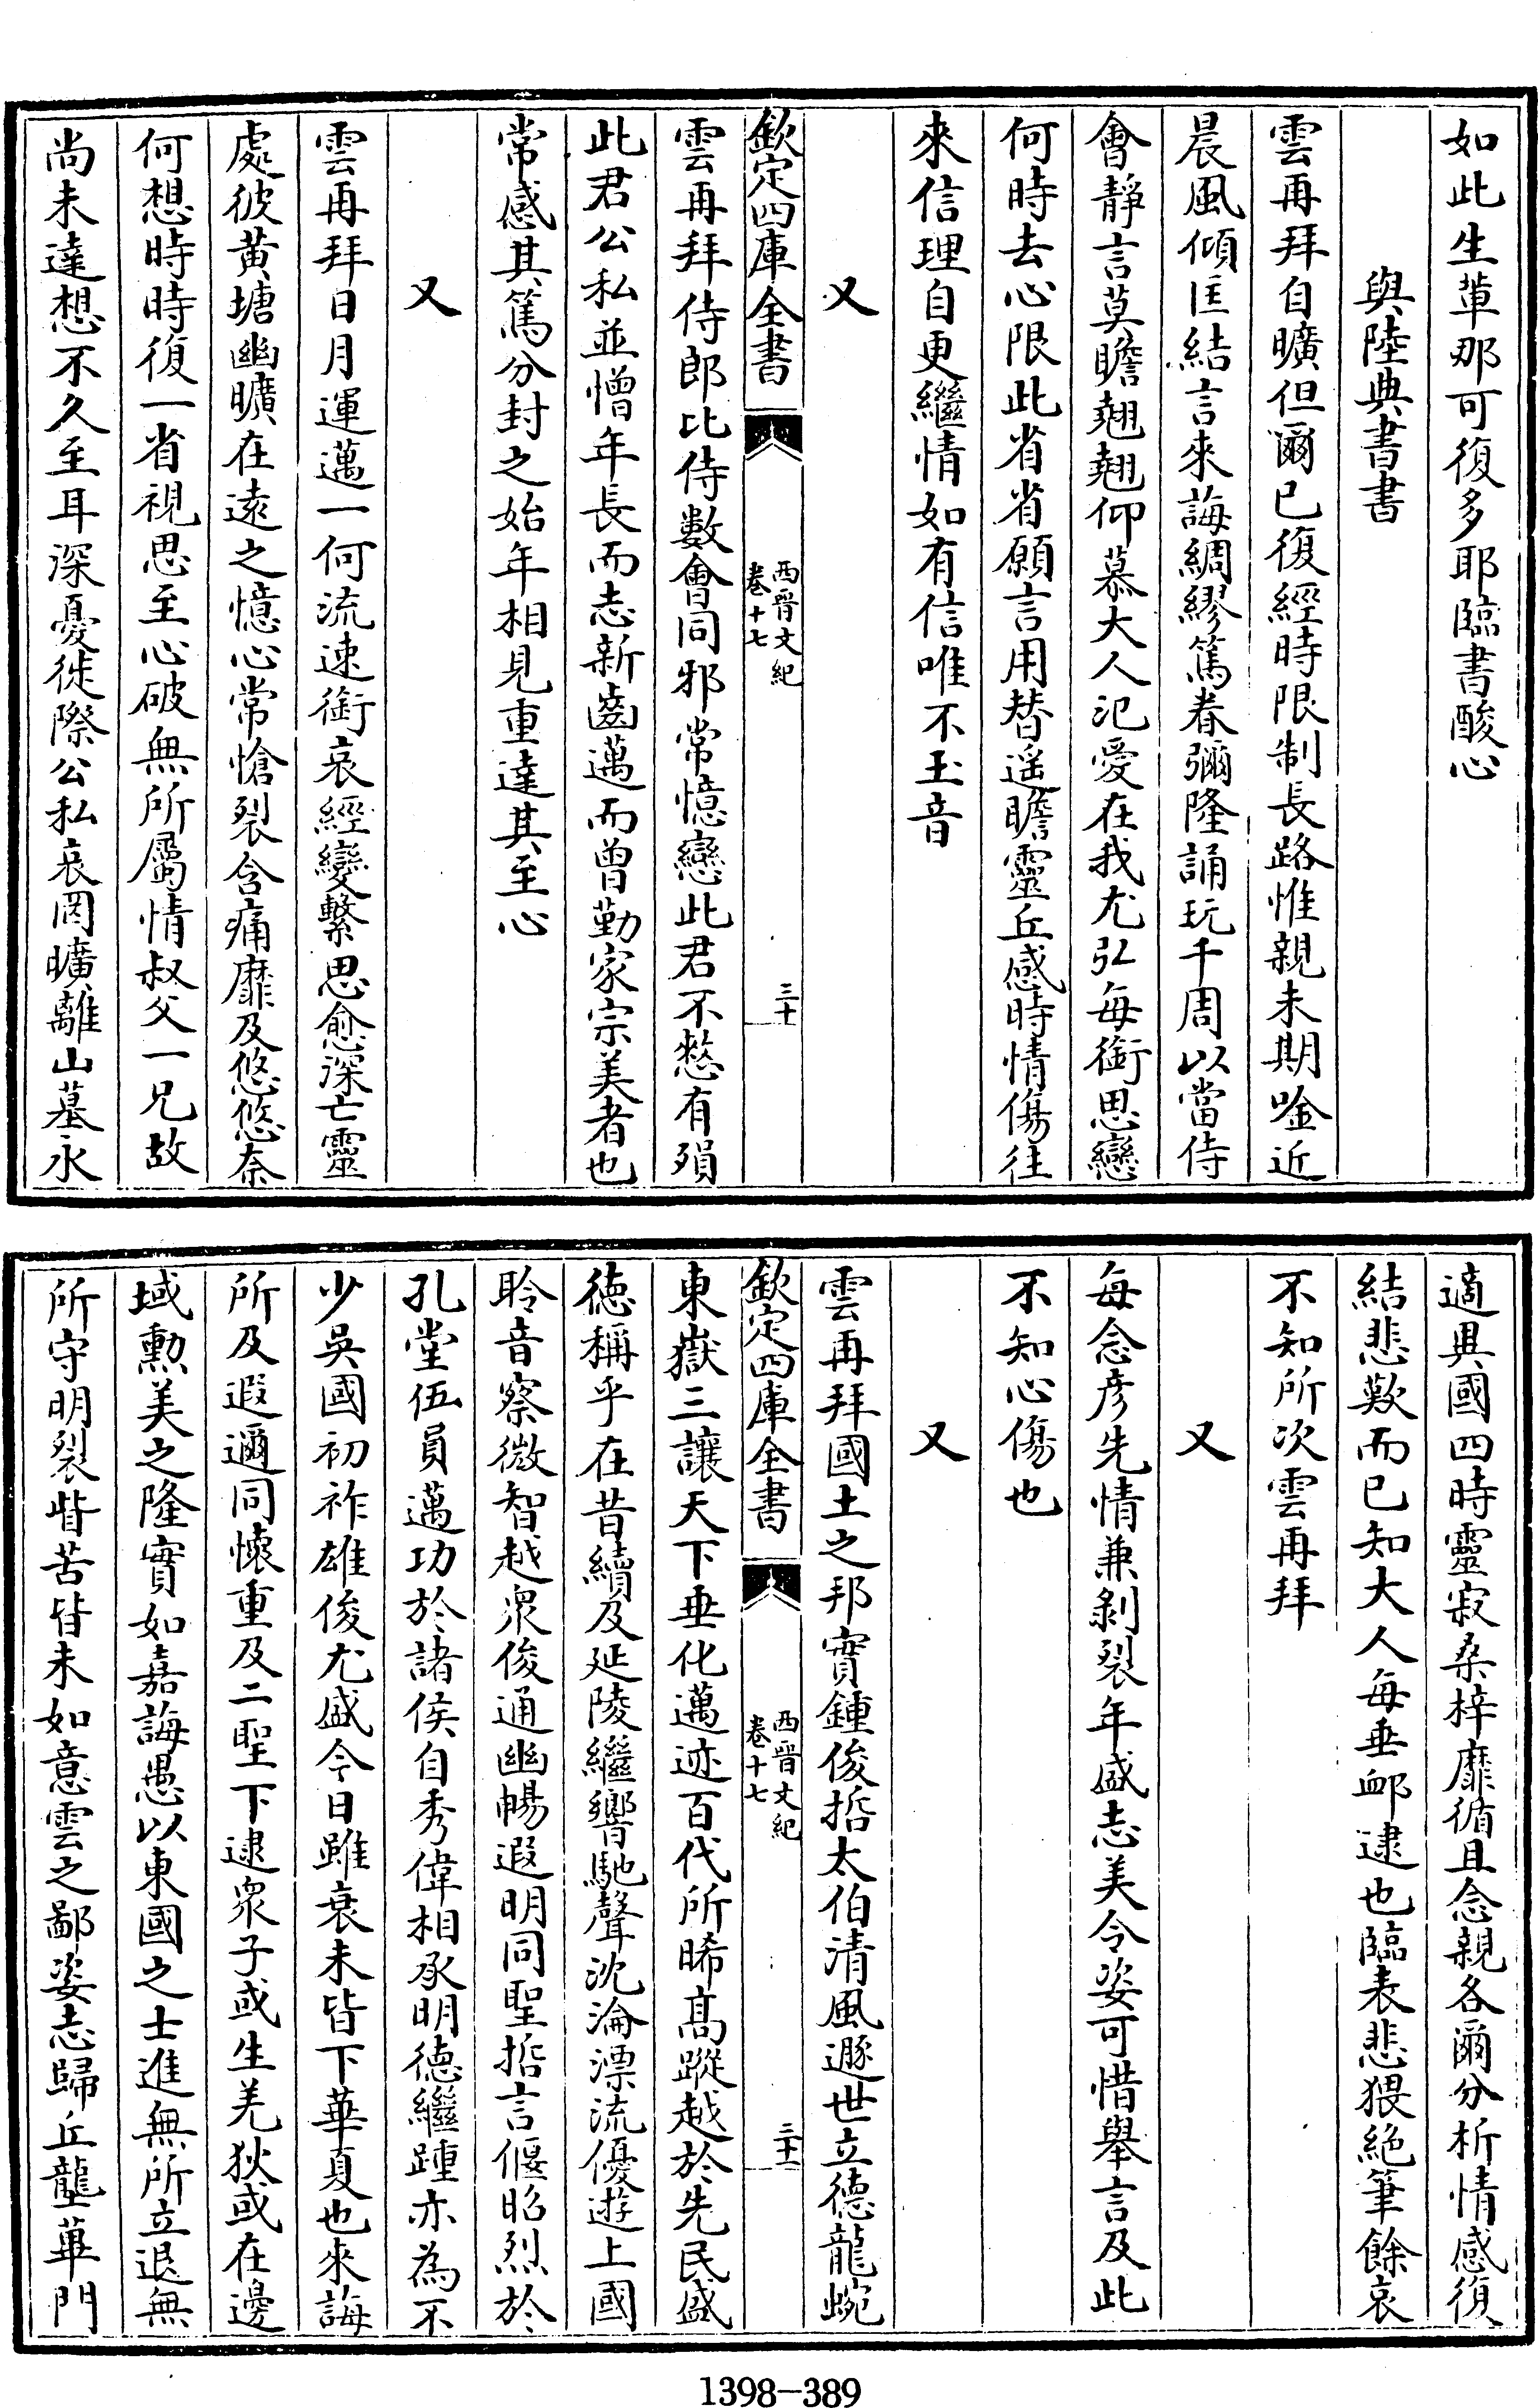 如此生輩那可復多耶臨書酸心
與陸典書書
雲再拜自曠但爾已復經時限制長路惟親未期唫近
晨風傾匡結言來誨綢繆篤眷彌隆誦玩千周以當侍
會靜言莫瞻翹翹仰慕大人汜愛在我尤弘每銜思戀
何時去心限此省省願言用替遥瞻靈丘感時情傷往
來信理自更繼情如有信唯不玉音
又
欽定四庫全書
西晉文紀
卷十七
三十
雲再拜侍郎比侍數會同邪常憶戀此君不慭有殞
此君公私並憎年長而志新齒邁而曾勤家宗美者也
常感其篤分封之始年相見重達其至心
又
雲再拜日月運邁一何流速銜哀經變繫思愈深亡靈
處彼黄塘幽曠在遠之憶心常愴裂含痛靡及悠悠奈
何想時時復一省視思至心破無所屬情叔父一兄故
尚未達想不久至耳深憂徙際公私哀罔曠離山墓永
適異國四時靈寂桑梓靡循且念親各爾分析情感復
結悲歎而已知大人每垂䘏逮也臨表悲猥絶筆餘哀
不知所次雲再拜
又
每念彦先情兼剝裂年盛志美令姿可惜舉言及此
不知心傷也
又
雲再拜國土之邦實鍾俊哲太伯清風遯世立德龍蜿
欽定四庫全書
西晉文紀
卷十七
三十一
東嶽三讓天下垂化邁迹百代所晞髙蹤越於先民盛
德稱乎在昔續及延陵繼響馳聲沈淪漂流優遊上國
聆音察微智越衆俊通幽暢遐明同聖哲言偃昭烈於
孔堂伍員邁功於諸侯自秀偉相承明德繼踵亦為不
少吳國初祚雄俊尤盛今日雖衰未皆下華夏也來誨
所及遐邇同懷重及二聖下逮衆子或生羌狄或在邊
域勳美之隆實如嘉誨愚以東國之士進無所立退無
所守明裂眥苦皆未如意雲之鄙姿志歸丘壟蓽門
1398-389